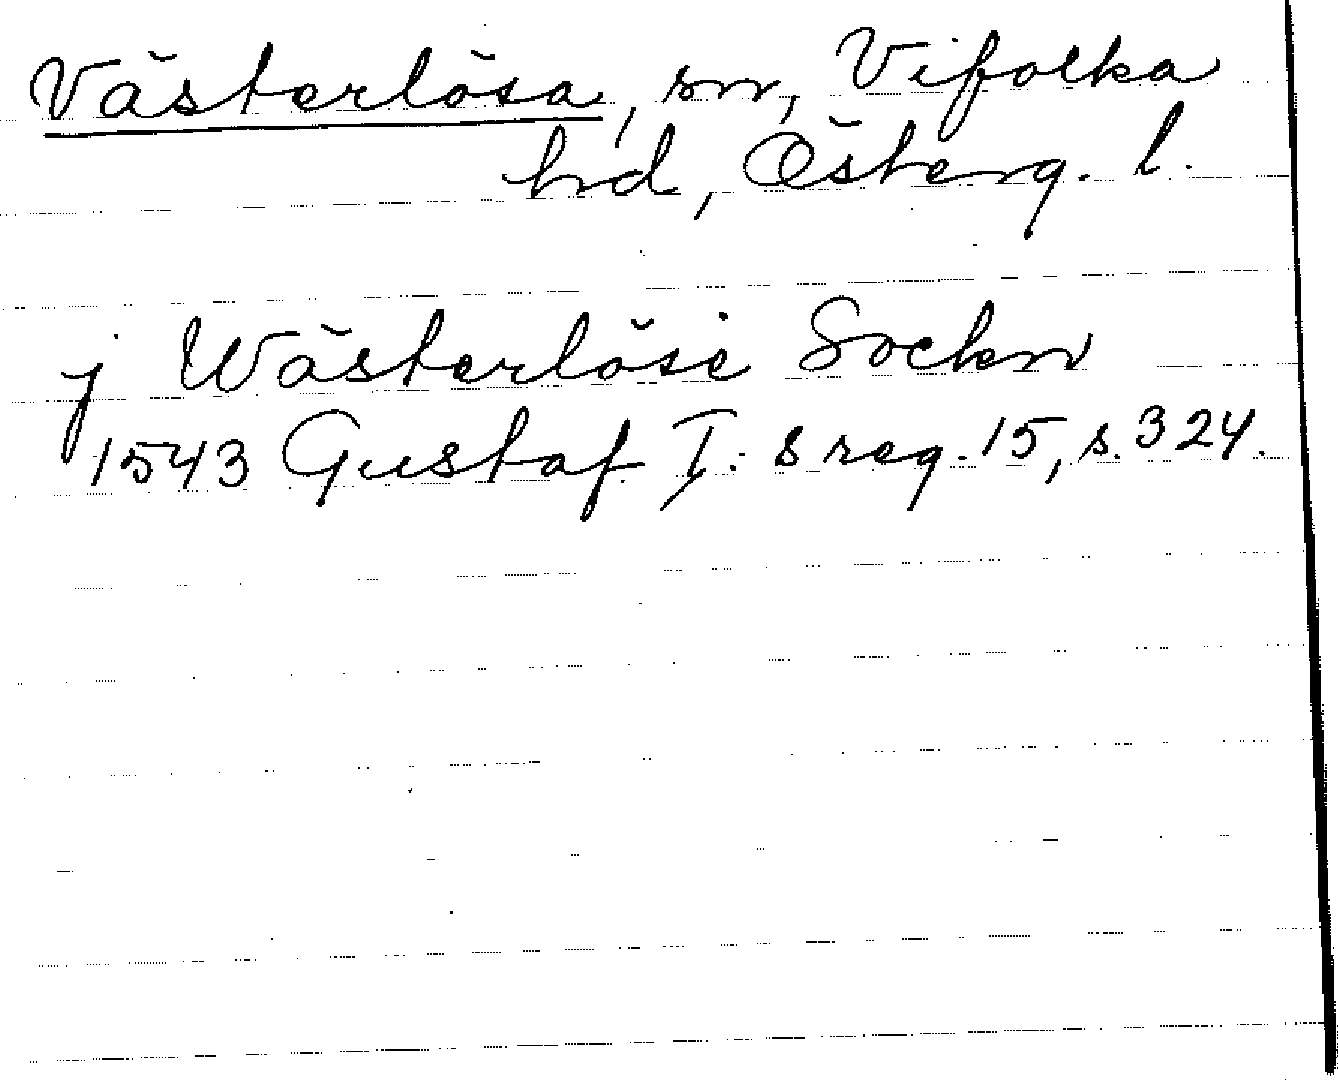 Västerlösa, sn, Vifolka
hd, Österg. l.
j Wästerlöse Sockn
1543 Gustaf I:s reg. 15, s. 324.